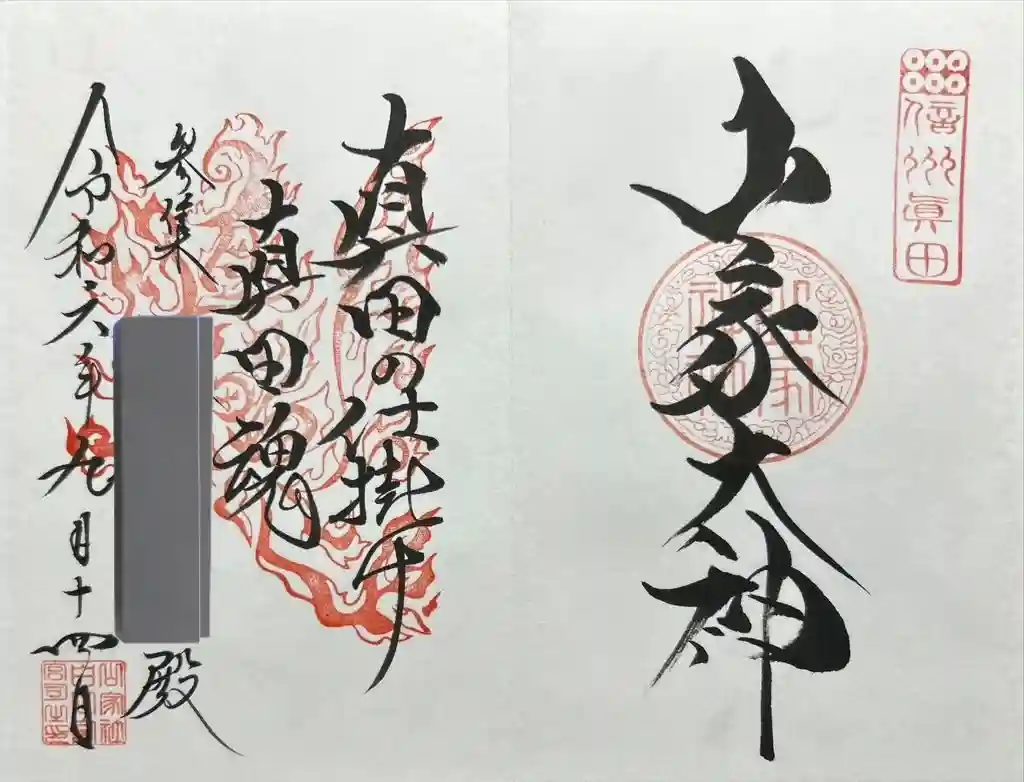 信州眞田
山家大神
真田の仕掛
真田魂
参集
殿
令和六年九月十四日